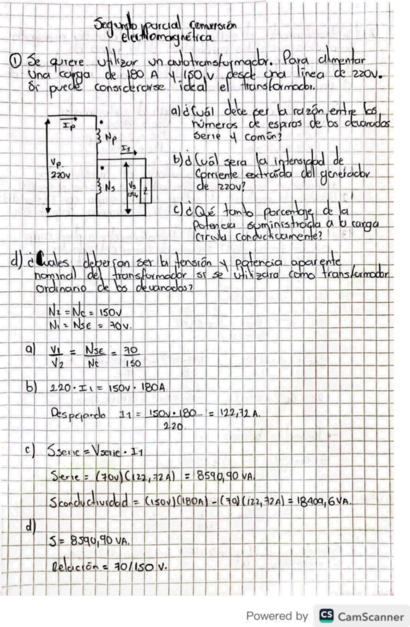 Segundo parcial conversión
electromagnética
① Se quiere utilizar un autotransformador. Para alimentar
Una carga de 180 A y 150,v desde una línea de 220v.
Si puede considerarse ideal el transformador.
a) ¿Cuál debe ser la razón entre los
números de espiras de los devanados
serie y común?
Ip
Np
I2
Vp
220v
Ns
Vs
Z
b) ¿Cuál sera la intensidad de
Corriente extraída del generador
de 220v?
c) ¿Qué tanto porcentaje de la
Potencia suministrada a la carga
Circula conductivamente?
d) ¿Cuales deberían ser la tensión y potencia aparente
nominal del transformador si se utilizara como transformador
Ordinario de los devanados?
N2 = Nc = 150v
N1 = NSE = 70v.
a) V1/V2 = NSE/Nc = 70/150
b) 220 · I1 = 150v · 180A
Despejando I1 = 150v · 180 / 220 = 122,72 A.
c) Sserie = Vserie · I1
Serie = (70v)(122,72A) = 8590,90 VA.
Sconductividad = (150v)(180A) - (70)(122,72A) = 18409,6VA.
d)
S = 8590,90 VA.
Relación = 70/150 v.
Powered by CS CamScanner